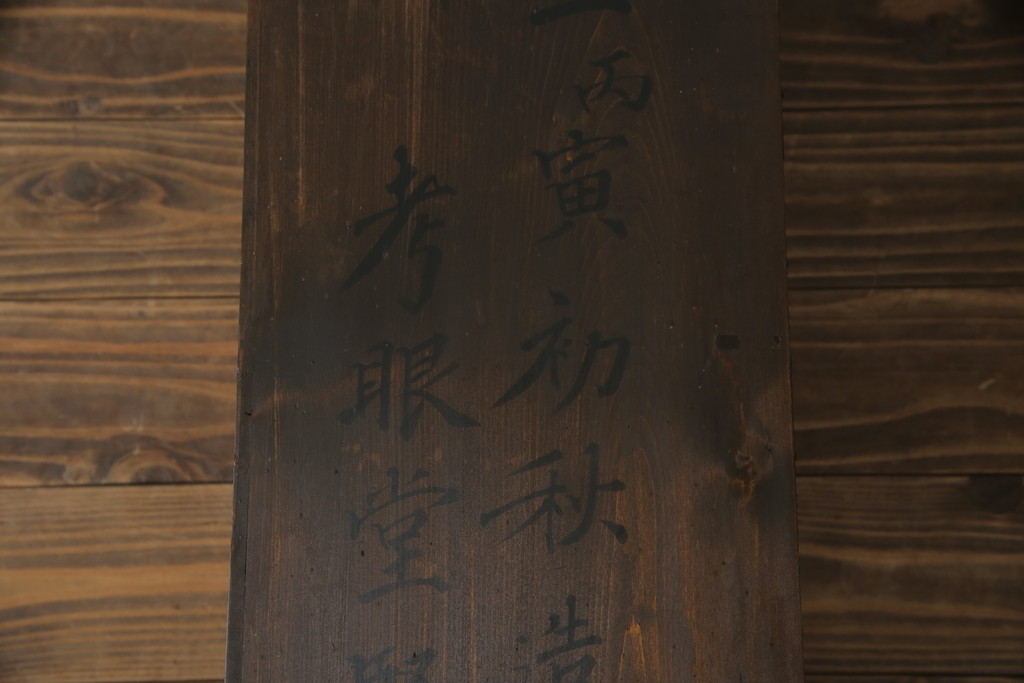 丙寅初秋造
考眼堂